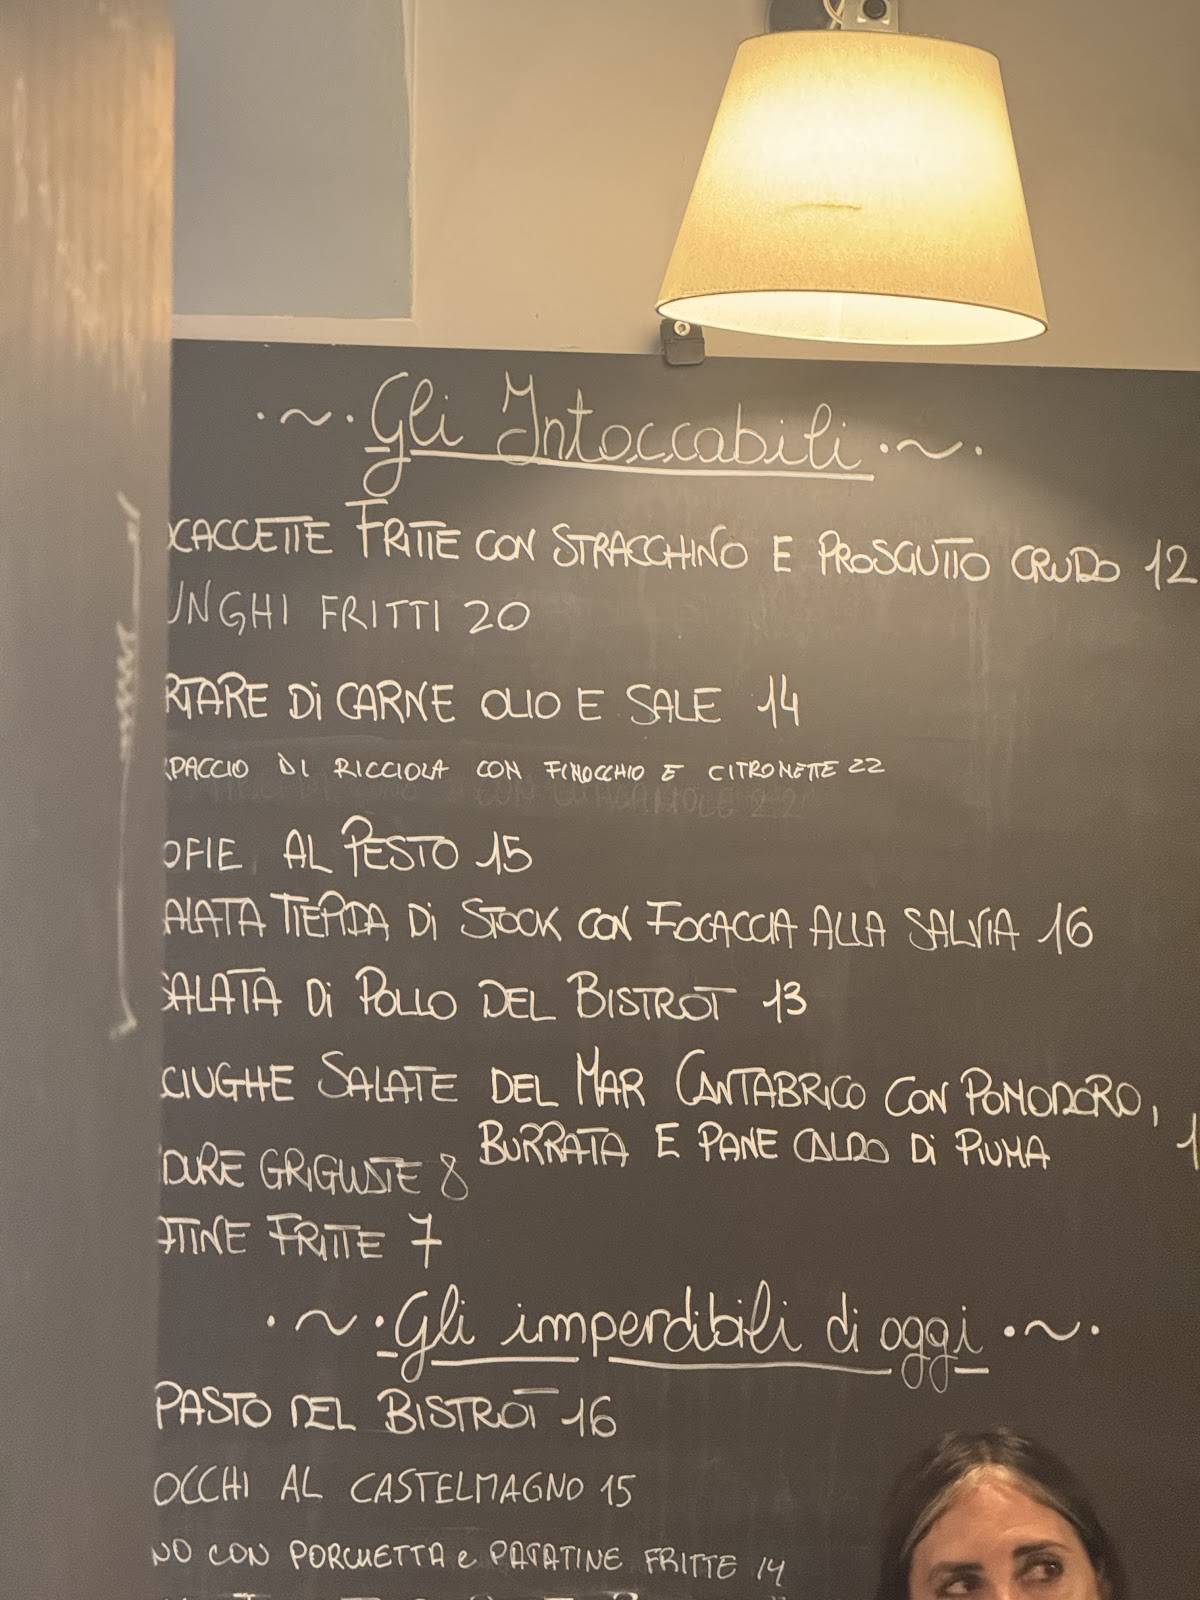 ·~· Gli Intoccabili ·~·
OCACCETTE FRITTE CON STRACCHINO E PROSCIUTTO CRUDO 12
UNGHI FRITTI 20
RTARE Di CARNE OLIO E SALE 14
RPACCIO DI RICCIOLA CON FINOCCHIO E CITRONETTE 22
OFIE AL PESTO 15
ALATA TIEPIDA Di STOCK CON FOCACCIA ALLA SALVIA 16
SALATA Di POLLO DEL BISTROT 13
CIUGHE SALATE DEL MAR CANTABRICO CON POMODORO,
BURRATA E PANE CALDO Di PIUMA 1
DURE GRIGLIATE 8
ATINE FRITTE 7
·~· Gli imperdibili di oggi ·~·
PASTO DEL BISTROT 16
OCCHI AL CASTELMAGNO 15
NO CON PORCHETTA e PATATINE FRITTE 14